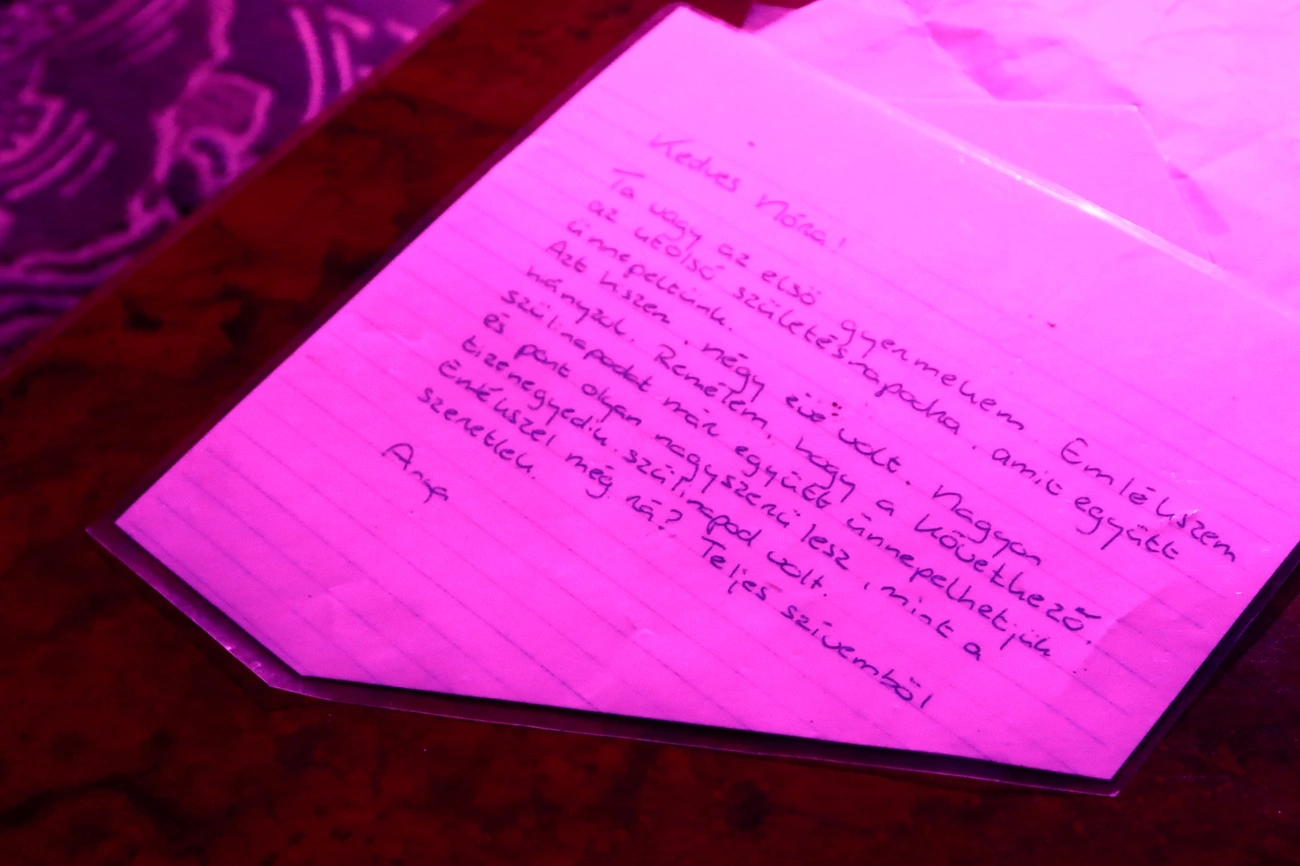 Kedves Nóra!
Te vagy az első gyermekem. Emlékszem
az utolsó születésnapodra, amit együtt
ünnepeltünk.
Azt hiszem, négy éve volt. Nagyon
hiányzol. Remélem, hogy a következő
szülinapodat már együtt ünnepelhetjük
és pont olyan nagyszerű lesz, mint a
tizenegyedik szülinapod volt.
Emlékszel még rá? Teljes szívemből
szeretlek.
Anya